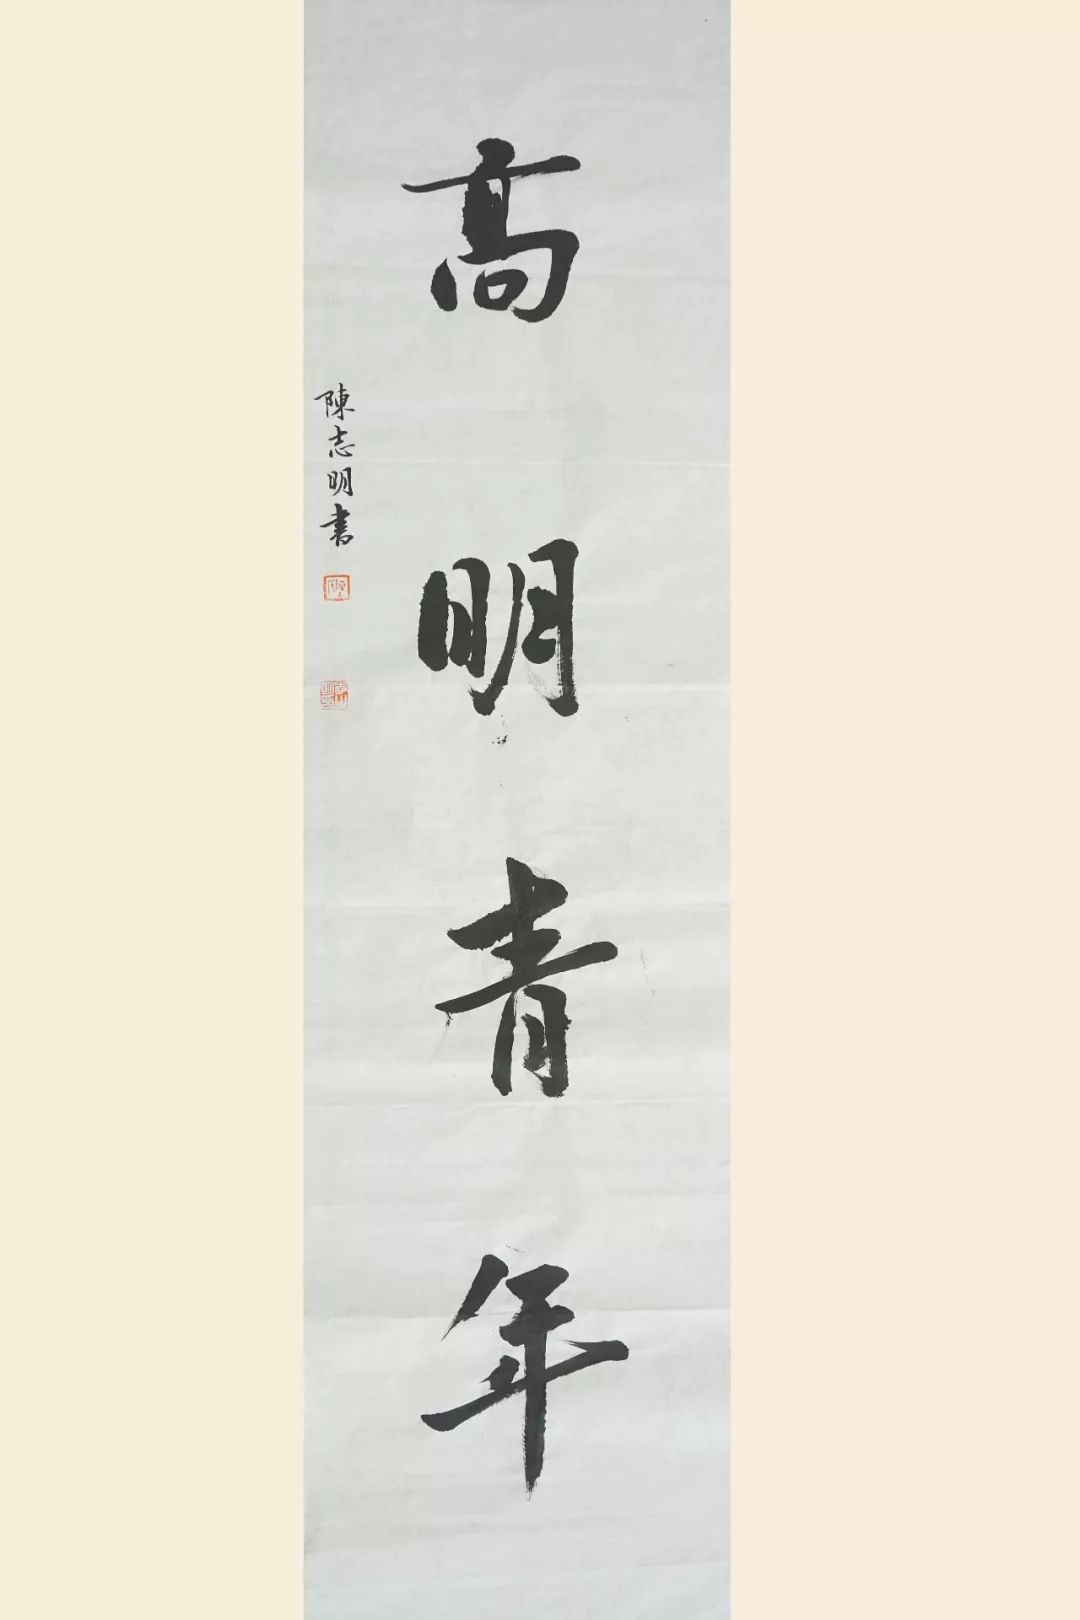 高明青年
陳志明書